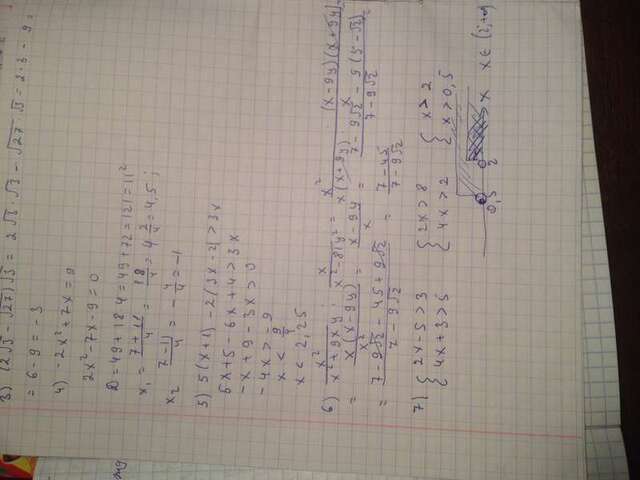 3) (2√3 - √27)√3 = 2√3·√3 - √27·√3 = 2·3 - 9 =
= 6 - 9 = -3
4) -2x² + 7x = 9
2x² - 7x - 9 = 0
D = 49 + 18·4 = 49 + 72 = 121 = 11²
x₁ = (7+11)/4 = 18/4 = 4 2/4 = 4,5;
x₂ = (7-11)/4 = -4/4 = -1
5) 5(x+1) - 2(3x-2) > 3x
5x + 5 - 6x + 4 > 3x
-x + 9 - 3x > 0
-4x > -9
x < 9/4
x < 2,25
6) x²/(x²+9xy) : x/(x²-81y²) = x²/(x(x+9y)) · (x-9y)(x+9y)/x =
= x(x-9y)/x = x-9y =
= (7-9√2-45+9√2)/(7-9√2) = (7-45)/(7-9√2)
7) { 2x - 5 > 3 { 2x > 8 { x > 2
4x + 3 > 5 4x > 2 x > 0,5
0,5 2 x x ∈ (2;+∞)